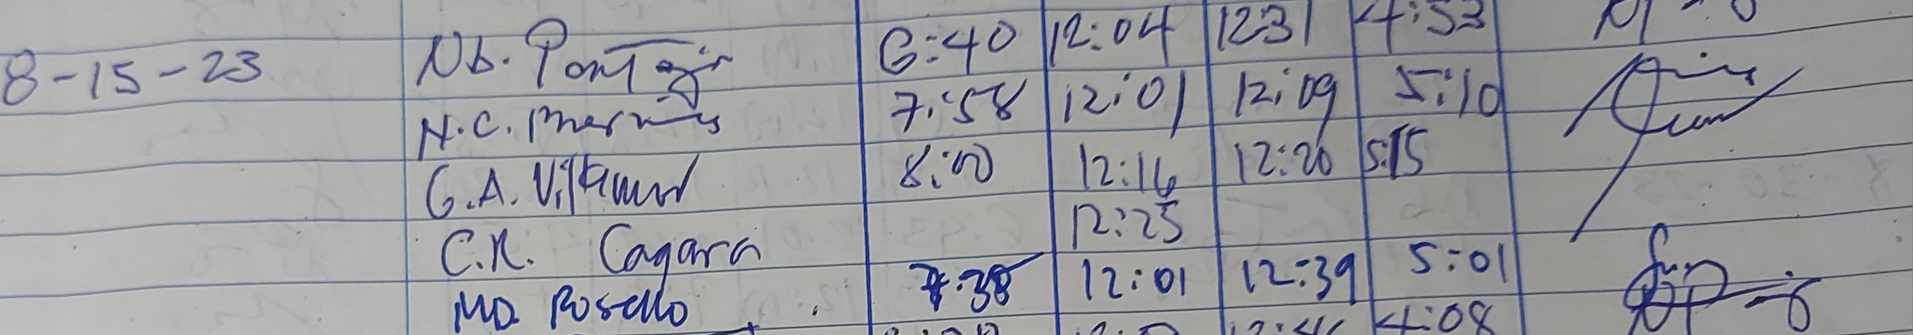 8-15-23 Nb. 6:40 12:04 1231 4:53
N.C. 7:58 12:01 12:09 5:10
G.A. 8:00 12:16 12:20 5:15
C.R. Cagara 12:25
MD. Rosello 7:38 12:01 12:39 5:01
4:08